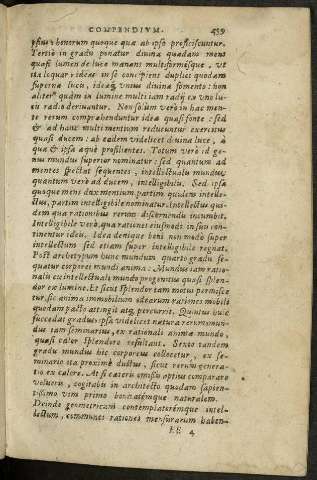 COMPENDIVM. 439
ipsius bonorum quoque quæ ab ipso proficiscuntur.
Tertiò in gradu ponatur diuina quædam mens
quasi lumen de luce manans multiformeque, vt
sta loquar ideæ in se concipiens duplici quodam
superna luce, ideæq; vnius diuina fomento: non
aliter quàm in lumine multi iam radij ex vno lu-
cis radio deriuantur. Non solùm verò in hac men-
te rerum comprehenduntur ideæ quasi fonte: sed
& ad hanc multi mentium reducuntur exercitus
quasi ducem: ab eadem videlicet diuina luce, à
qua & ipsa atque prosilientes. Totum verò id ge-
nus mundus superior nominatur: sed quantum ad
mentes spectat sequentes, intellectualis mundus,
quantum verò ad ducem, intelligibilis. Sed ipsa
quoque mens dux mentium partim quidem intelle-
ctus, partim intelligibile nominatur. Intellectus qui-
dem qua rationibus rerum discernendis incumbit.
Intelligibile verò, qua rationes eiusmodi in suo con-
tinentur ideis. Idea denique boni non modò super
intellectum sed etiam super intelligibile regnat.
Post archetypum hunc mundum quarto gradu se-
quatur corporei mundi anima: Mundus iam ratio-
nalis ex intellectuali mundo progenitus quasi splen-
dor ex lumine. Et sicut splendor tam motus permisce-
tur, sic anima immobilium idearum rationes mobili
quodam pacto attingit atq; percurrit. Quintus huic
succedat gradus ipsa videlicet natura rerum mun-
dus iam seminarius, ex rationali anima mundo,
quasi calor splendore resultans. Sexto tandem
gradu mundus hic corporeus collocetur, ex se-
minario ita proximè ductus, sicut rerum genera-
tio ex calore. At si cæteris omissis aptius comparare
volueris, cogitabis in architecto quodam sapien-
tissimo vim primo bonitatémque naturalem.
Deinde geometricam contemplatricémque intel-
lectum, communes rationes mensurarum haben-
EE 4